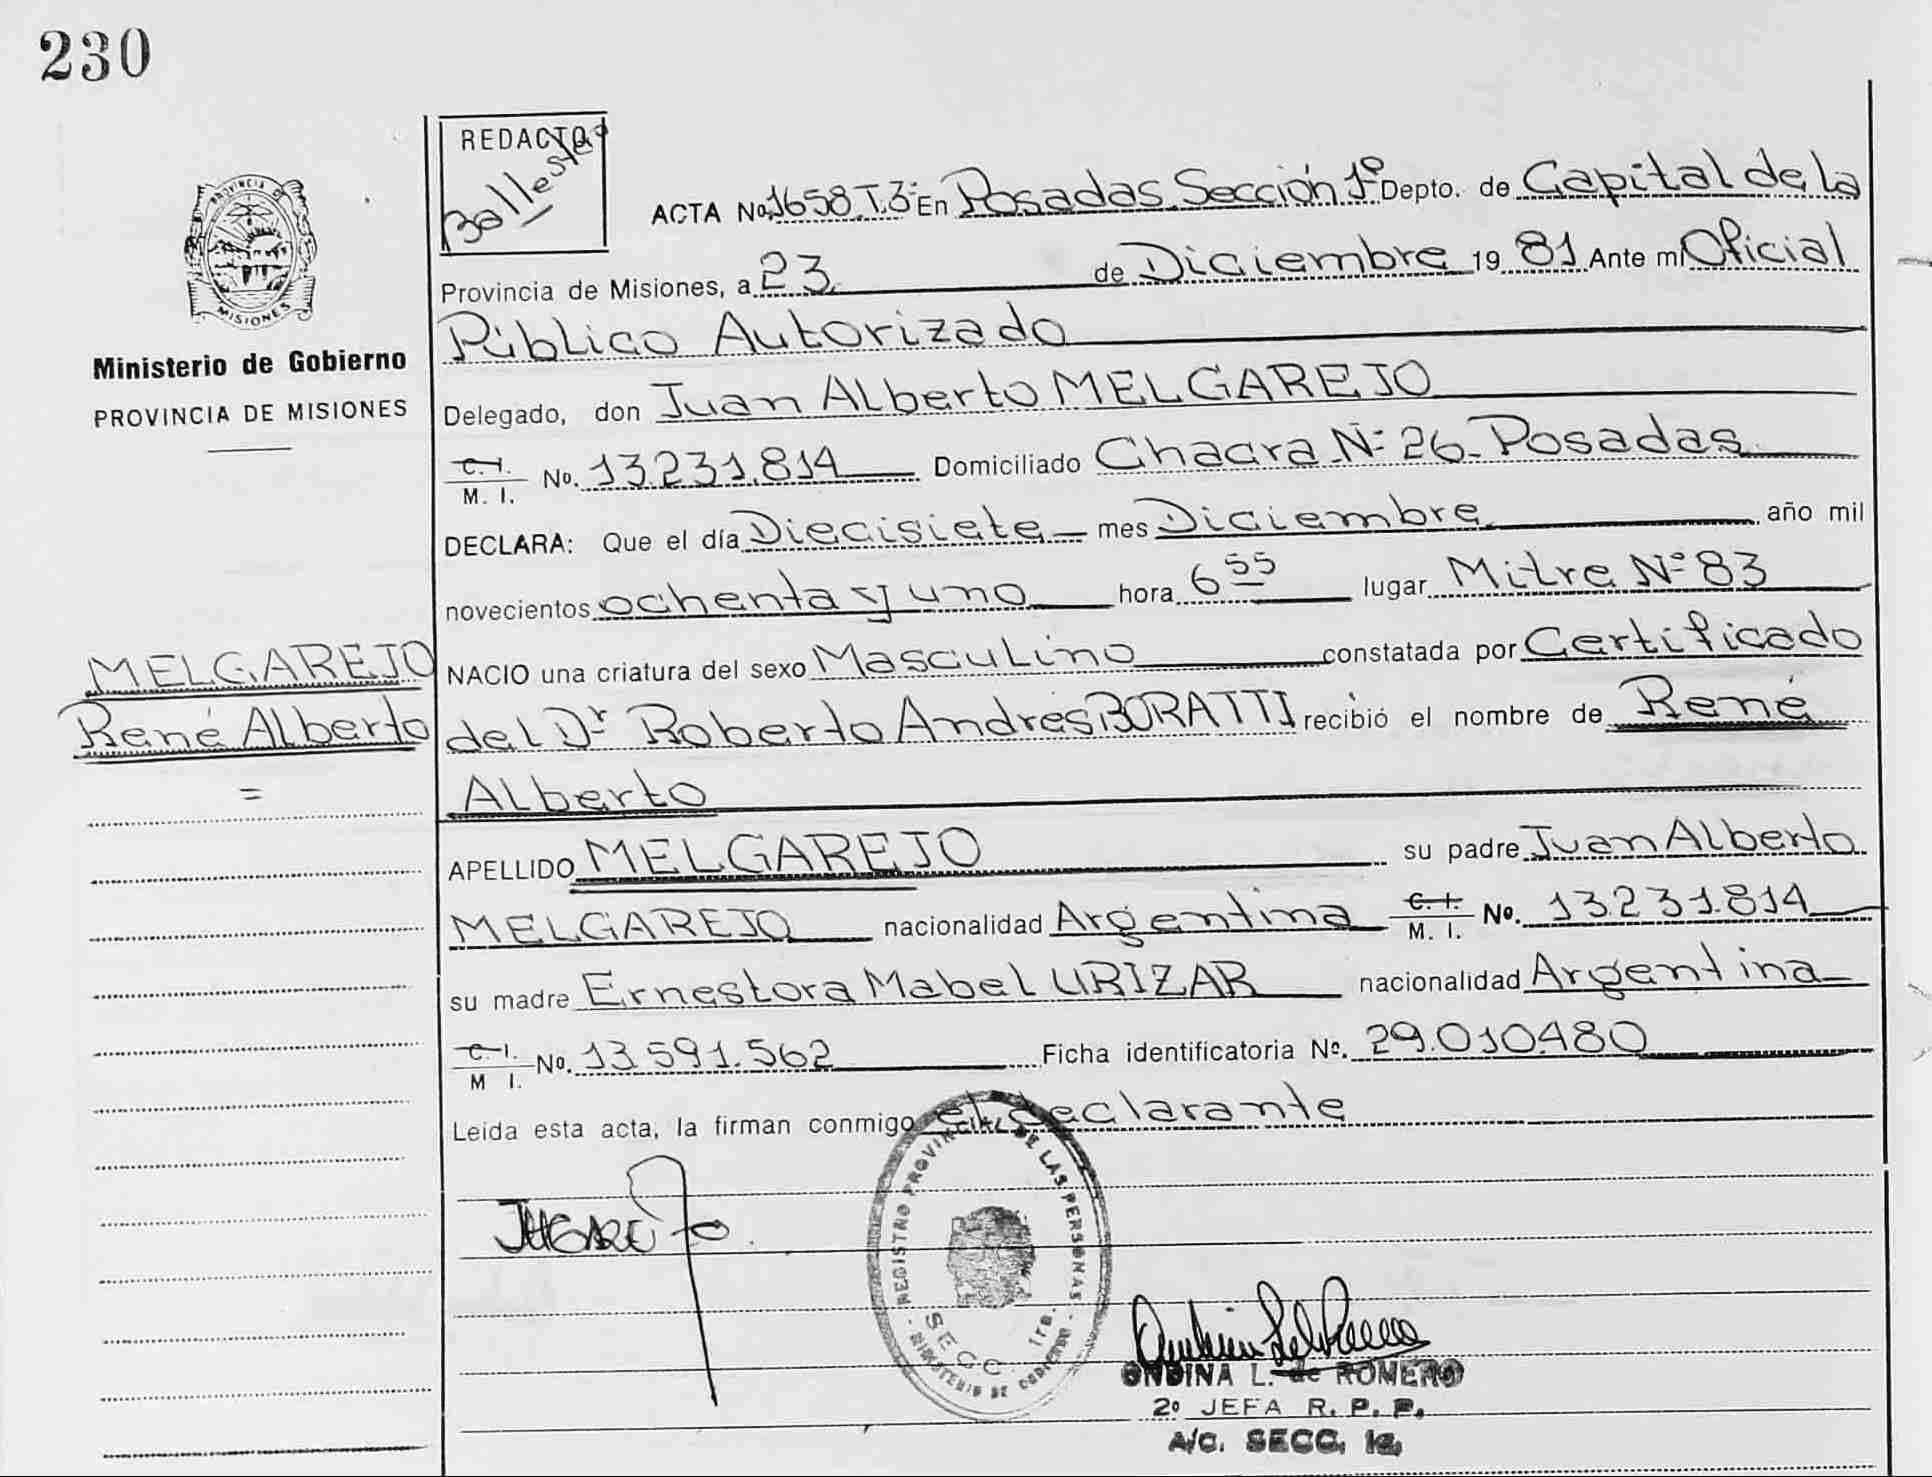 230
REDACTO
Ballester
PROVINCIA DE
MISIONES
Ministerio de Gobierno
PROVINCIA DE MISIONES
ACTA No. 1658 T.3º En Posadas Sección 1º Depto. de Capital de la
Provincia de Misiones, a 23 de Diciembre 19 81 Ante mi Oficial
Público Autorizado
Delegado, don Juan Alberto MELGAREJO
C. I. / M. I. No. 13.231.814 Domiciliado Chacra Nº 26 - Posadas
DECLARA: Que el día Diecisiete mes Diciembre año mil
novecientos ochenta y uno hora 6 55 lugar Mitre Nº 83
MELGAREJO
René Alberto
=
NACIO una criatura del sexo Masculino constatada por Certificado
del Dr Roberto Andres BORATTI recibió el nombre de René
Alberto
APELLIDO MELGAREJO su padre Juan Alberto
MELGAREJO nacionalidad Argentina C. I. / M. I. No. 13.231.814
su madre Ernestora Mabel URIZAR nacionalidad Argentina
C. I. / M I. No. 13.591.562 Ficha identificatoria No. 29.010.480
Leida esta acta, la firman conmigo el declarante
REGISTRO PROVINCIAL DE LAS PERSONAS
SECC. 1ra.
MINISTERIO DE GOBIERNO
ONDINA L. de ROMERO
2º JEFA R. P. P.
A/C. SECC. 1a.